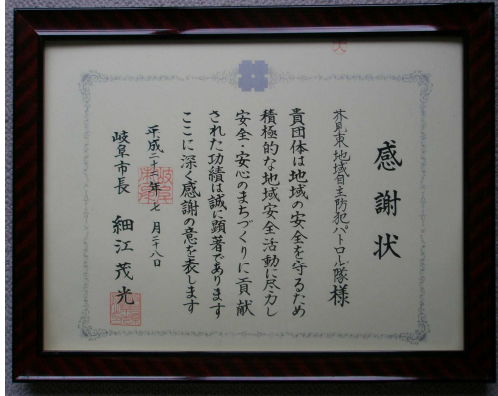 感謝状
芥見東地域自主防犯パトロール隊様
貴団体は地域の安全を守るため
積極的な地域安全活動に尽力し
安全・安心のまちづくりに貢献
された功績は誠に顕著であります
ここに深く感謝の意を表します
平成二十年七月二十八日
岐阜市長 細江茂光